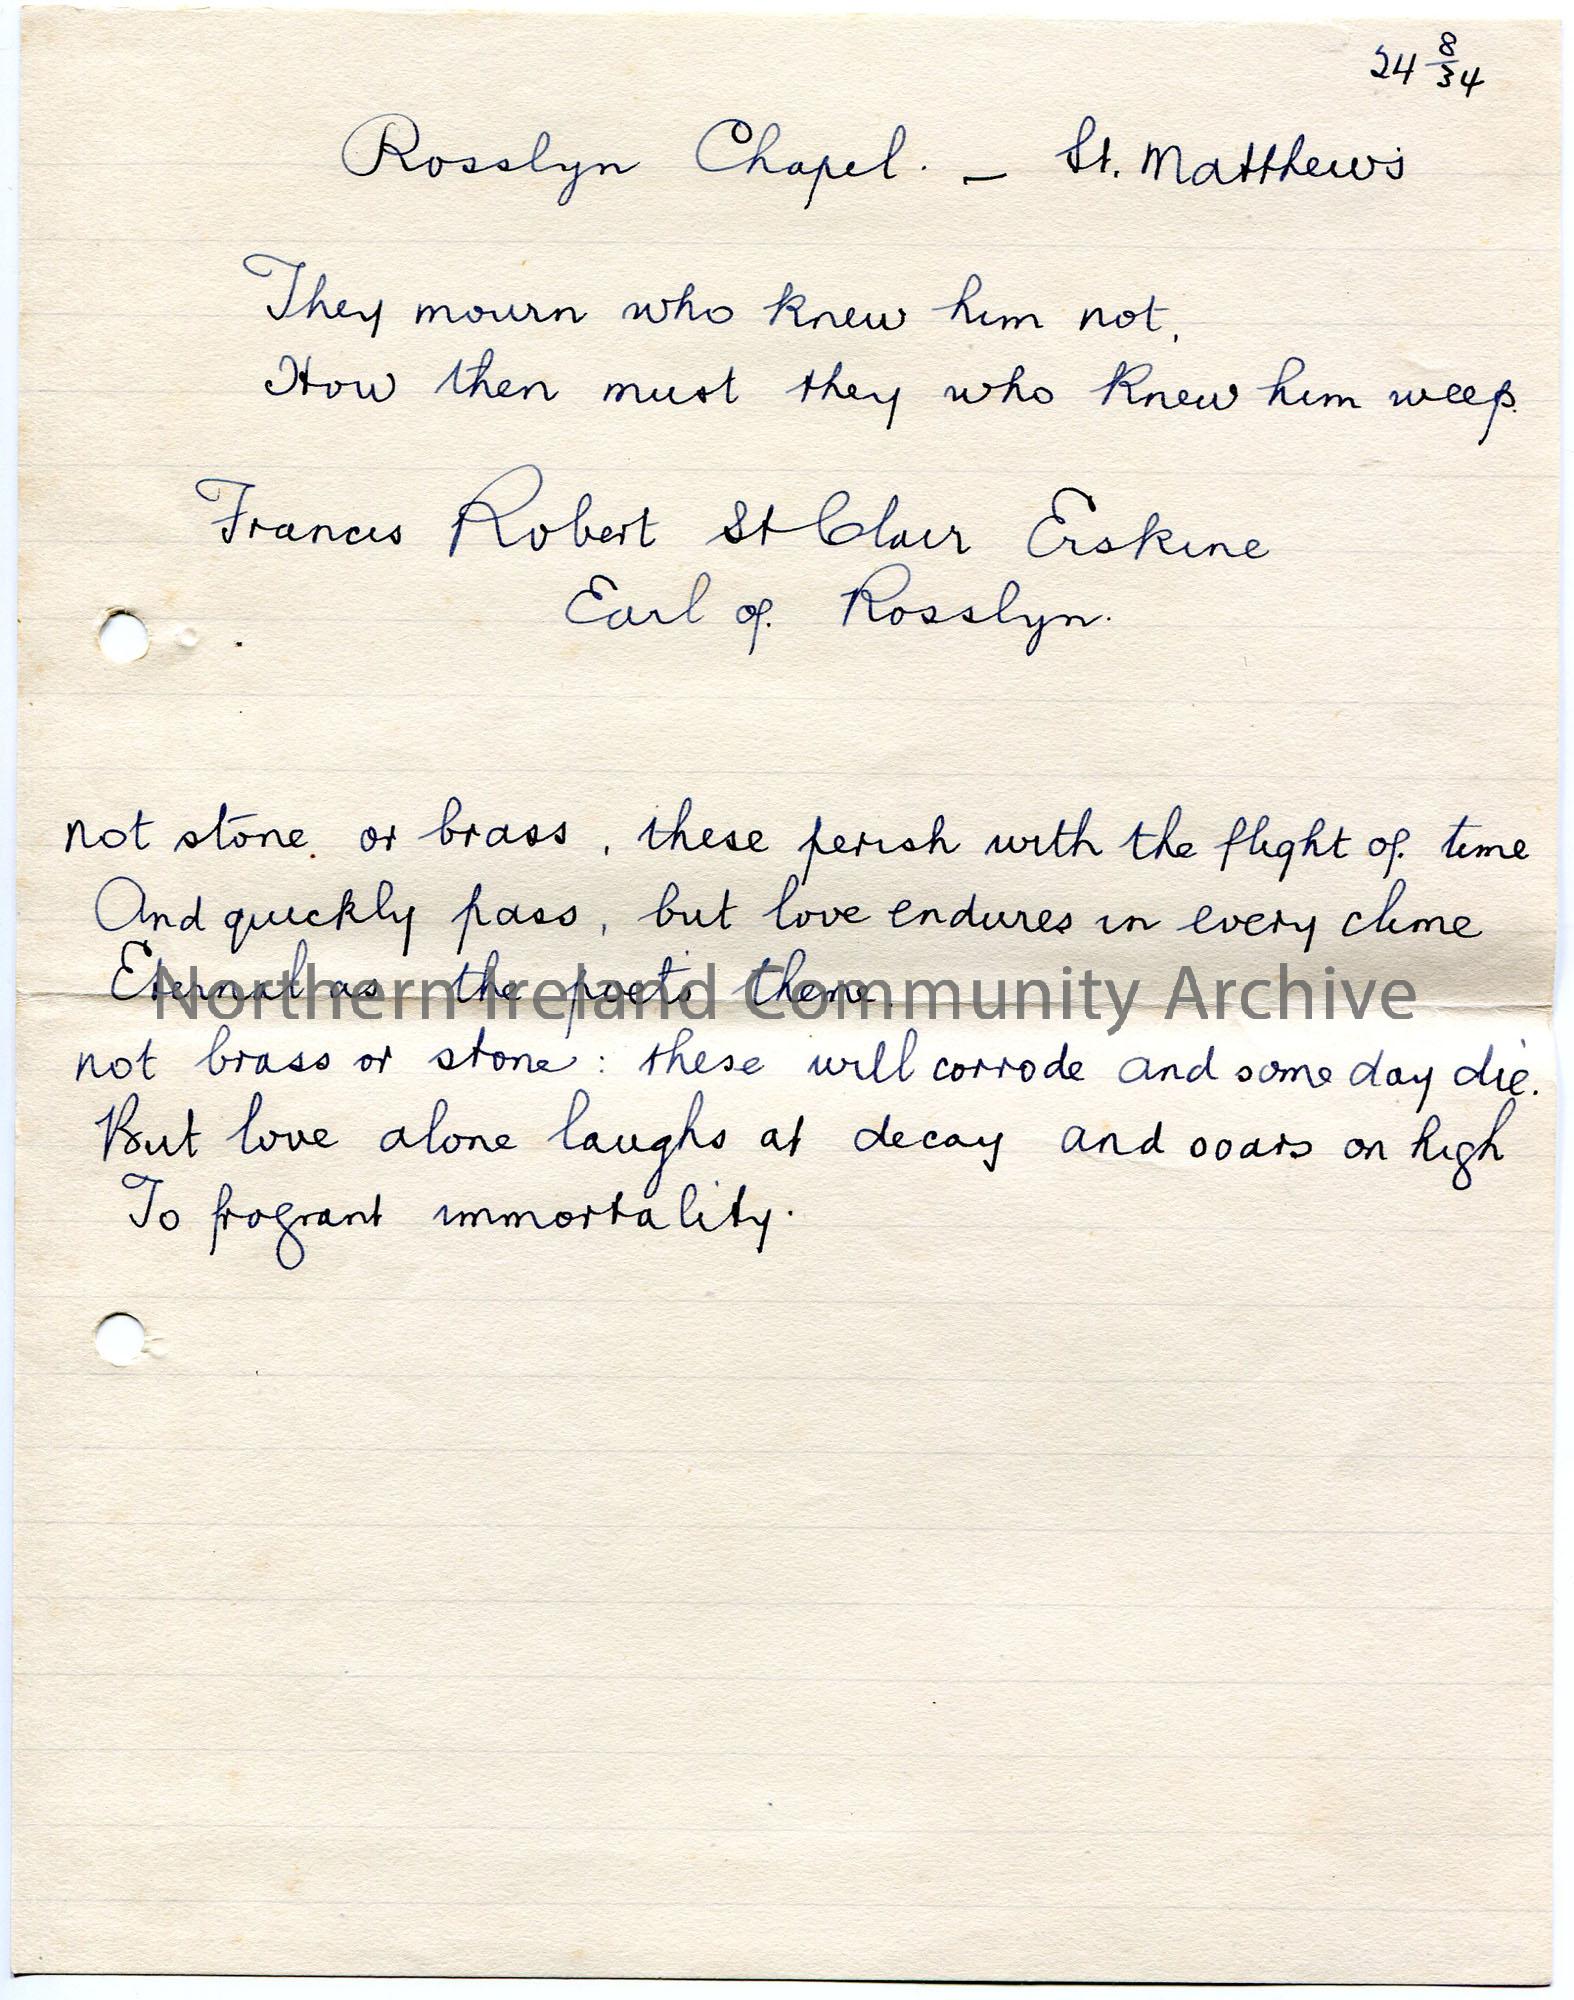 24 8/34
Rosslyn Chapel. — St. Matthews
They mourn who knew him not,
How then must they who knew him weep.
Francis Robert St Clair Erskine
Earl of Rosslyn.
not stone or brass, these perish with the flight of time
And quickly pass, but love endures in every clime
Eternal as the poet's theme.
Northern Ireland Community Archive
not brass or stone: these will corrode and some day die.
But love alone laughs at decay and soars on high
To fragrant immortality.